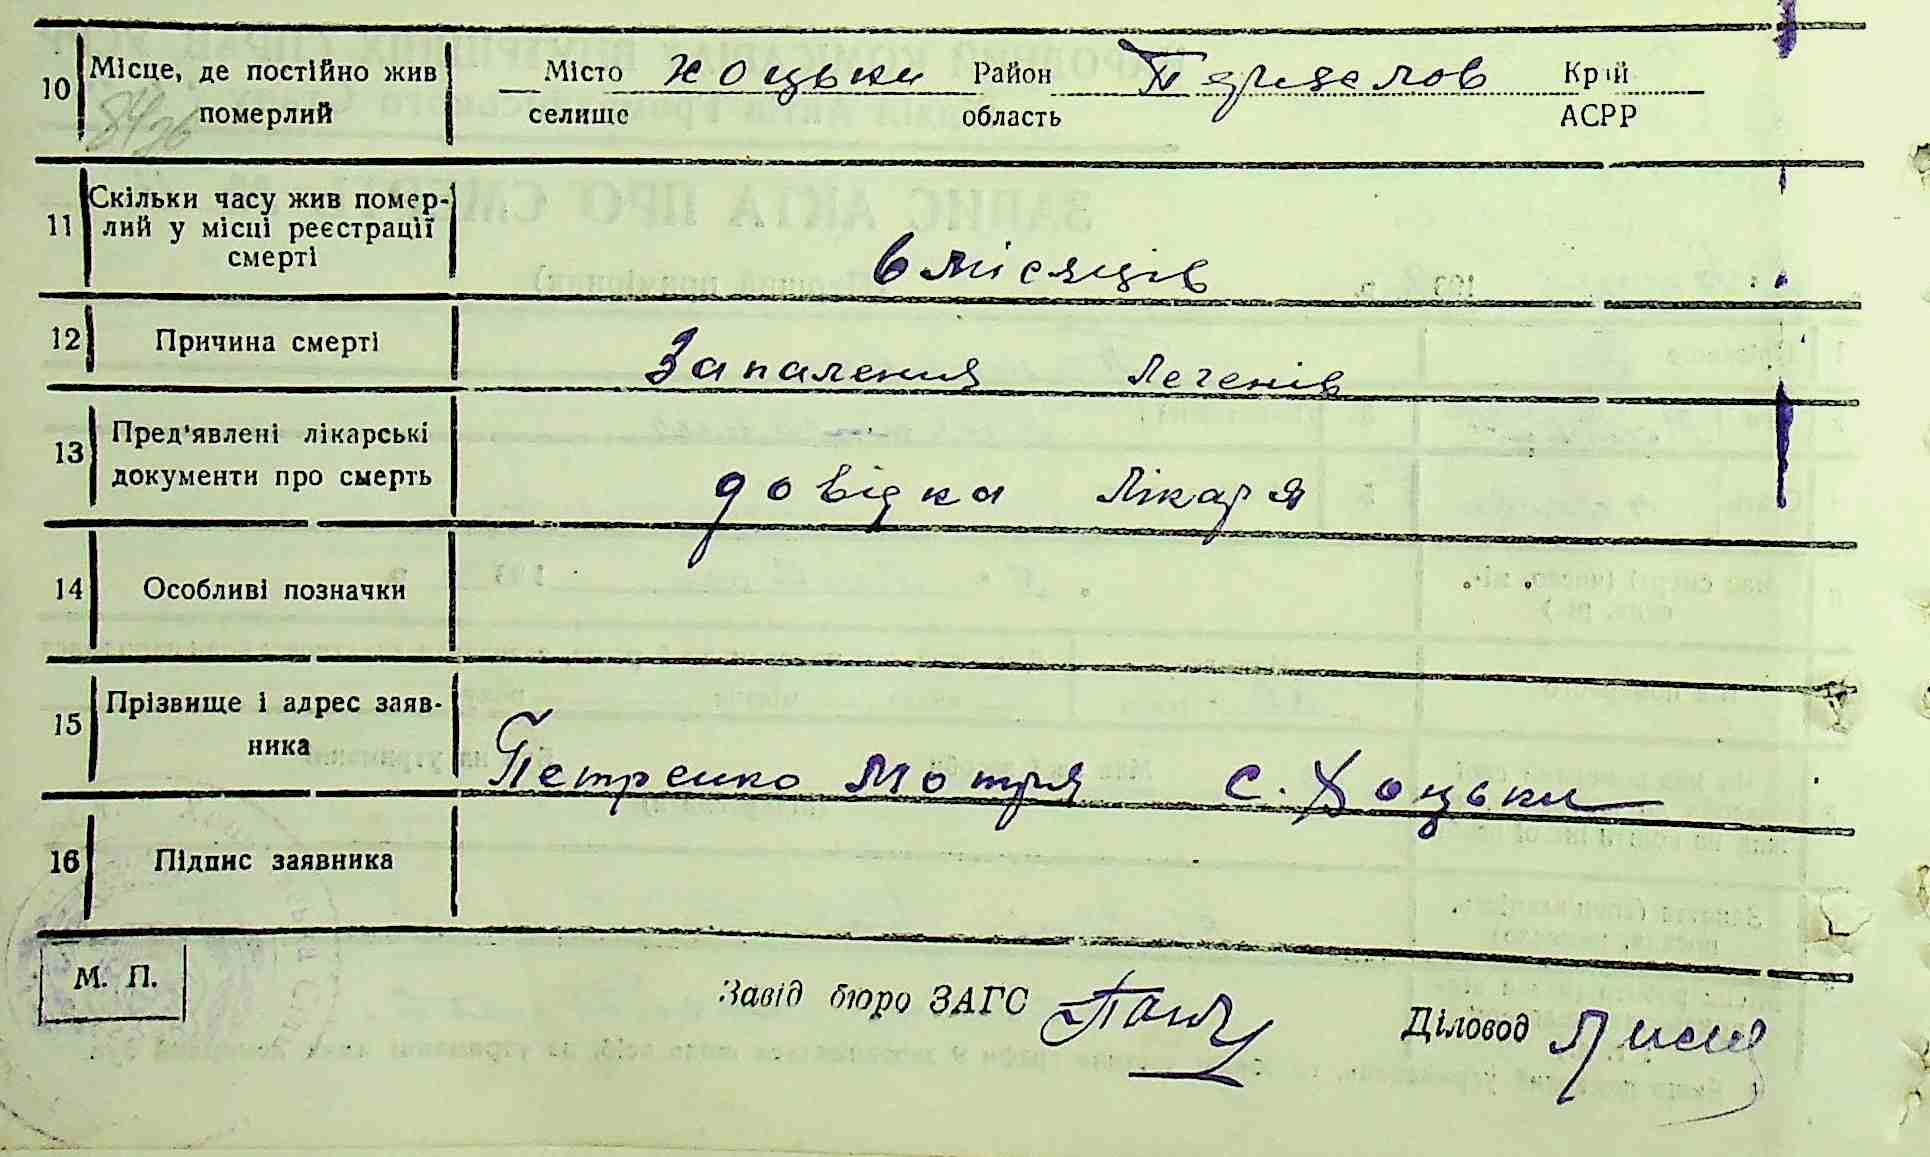 10 Місце, де постійно жив Місто Хоцьки Район Переяслов Край
померлий селище область АСРР
8426
11 Скільки часу жив помер-
лий у місці реєстрації
смерті
6 місяців
12 Причина смерті Запалення легенів
13 Пред'явлені лікарські
документи про смерть
довідка лікаря
14 Особливі позначки
15 Прізвище і адрес заяв-
ника
Петренко Мотря с. Хоцьки
16 Підпис заявника
М. П.
Завід бюро ЗАГС
Діловод